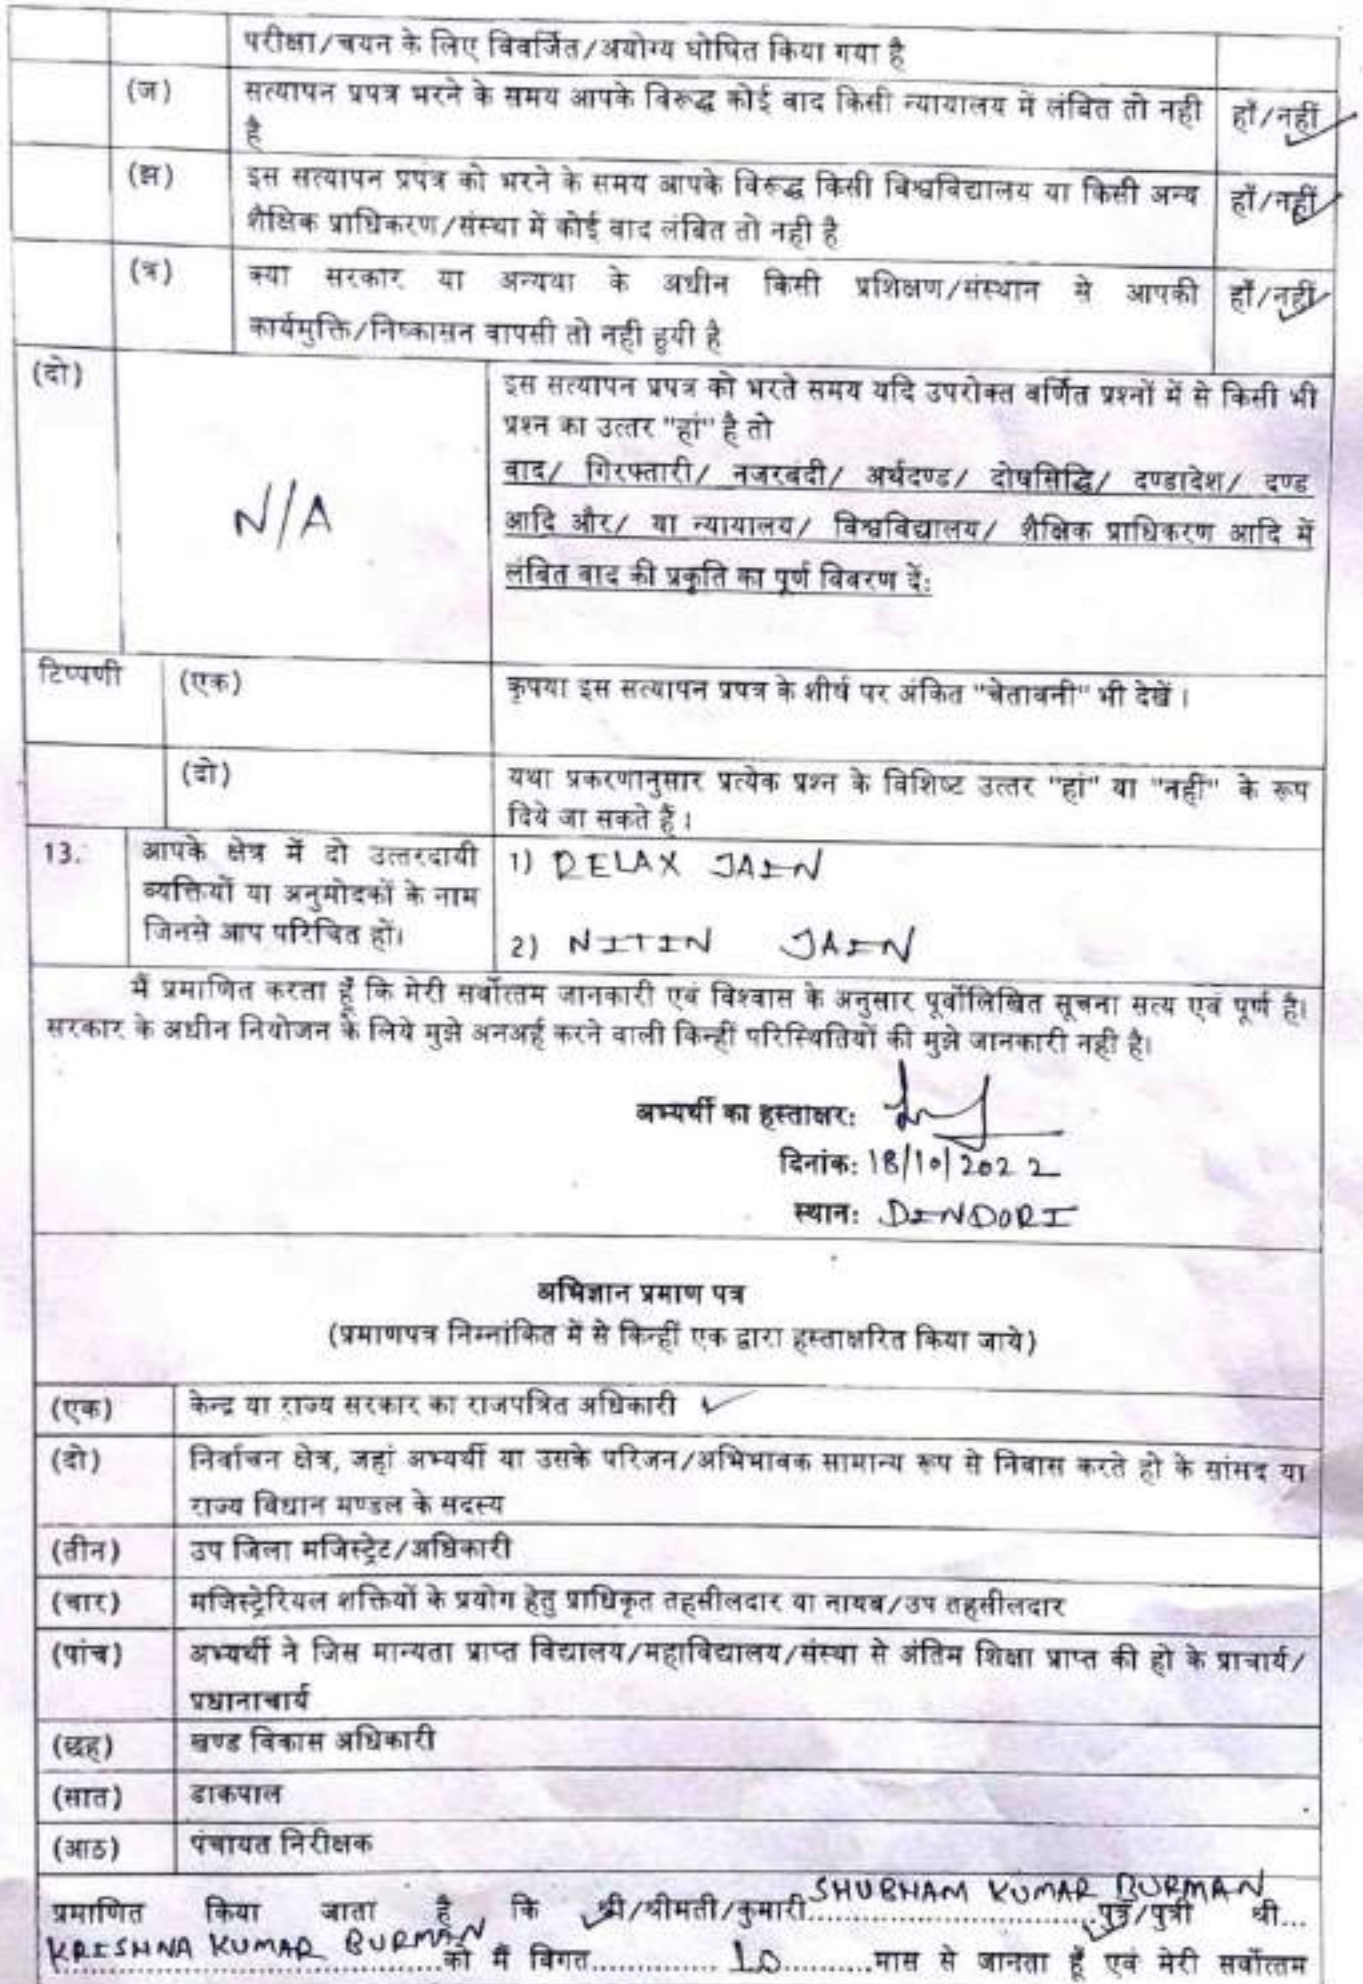 परीक्षा/चयन के लिए विवर्जित/अयोग्य घोषित किया गया है
(ज) सत्यापन प्रपत्र भरने के समय आपके विरूद्ध कोई वाद किसी न्यायालय में लंबित तो नही हाँ/नहीं
है
(झ) इस सत्यापन प्रपत्र को भरने के समय आपके विरूद्ध किसी विश्वविद्यालय या किसी अन्य हाँ/नहीं
शैक्षिक प्राधिकरण/संस्था में कोई वाद लंबित तो नही है
(त्र) क्या सरकार या अन्यथा के अधीन किसी प्रशिक्षण/संस्थान से आपकी हाँ/नहीं
कार्यमुक्ति/निष्कासन वापसी तो नही हुयी है
(दो) इस सत्यापन प्रपत्र को भरते समय यदि उपरोक्त वर्णित प्रश्नों में से किसी भी
प्रश्न का उत्तर "हां" है तो
वाद/ गिरफ्तारी/ नजरबंदी/ अर्थदण्ड/ दोषसिद्धि/ दण्डादेश/ दण्ड
N/A आदि और/ या न्यायालय/ विश्वविद्यालय/ शैक्षिक प्राधिकरण आदि में
लंबित वाद की प्रकृति का पूर्ण विवरण दें:
टिप्पणी (एक) कृपया इस सत्यापन प्रपत्र के शीर्ष पर अंकित "चेतावनी" भी देखें ।
(दो) यथा प्रकरणानुसार प्रत्येक प्रश्न के विशिष्ट उत्तर "हां" या "नहीं" के रूप
दिये जा सकते हैं ।
13. आपके क्षेत्र में दो उत्तरदायी 1) RELAX JAIN
व्यक्तियों या अनुमोदकों के नाम
जिनसे आप परिचित हों। 2) NITIN JAIN
मैं प्रमाणित करता हूँ कि मेरी सर्वोत्तम जानकारी एवं विश्वास के अनुसार पूर्वोलिखित सूचना सत्य एवं पूर्ण है।
सरकार के अधीन नियोजन के लिये मुझे अनअर्ह करने वाली किन्हीं परिस्थितियों की मुझे जानकारी नही है।
अभ्यर्थी का हस्ताक्षर:
दिनांक: 18/10/2022
स्थान: DINDORI
अभिज्ञान प्रमाण पत्र
(प्रमाणपत्र निम्नांकित में से किन्हीं एक द्वारा हस्ताक्षरित किया जाये)
(एक) केन्द्र या राज्य सरकार का राजपत्रित अधिकारी ✓
(दो) निर्वाचन क्षेत्र, जहां अभ्यर्थी या उसके परिजन/अभिभावक सामान्य रूप से निवास करते हो के सांसद या
राज्य विधान मण्डल के सदस्य
(तीन) उप जिला मजिस्ट्रेट/अधिकारी
(चार) मजिस्ट्रेरियल शक्तियों के प्रयोग हेतु प्राधिकृत तहसीलदार या नायब/उप तहसीलदार
(पांच) अभ्यर्थी ने जिस मान्यता प्राप्त विद्यालय/महाविद्यालय/संस्था से अंतिम शिक्षा प्राप्त की हो के प्राचार्य/
प्रधानाचार्य
(छह) खण्ड विकास अधिकारी
(सात) डाकपाल
(आठ) पंचायत निरीक्षक
प्रमाणित किया जाता है कि श्री/श्रीमती/कुमारी SHUBHAM KUMAR BURMAN पुत्र/पुत्री श्री...
KRISHNA KUMAR BURMAN को मैं विगत.............. 10 ..........मास से जानता हूँ एवं मेरी सर्वोत्तम